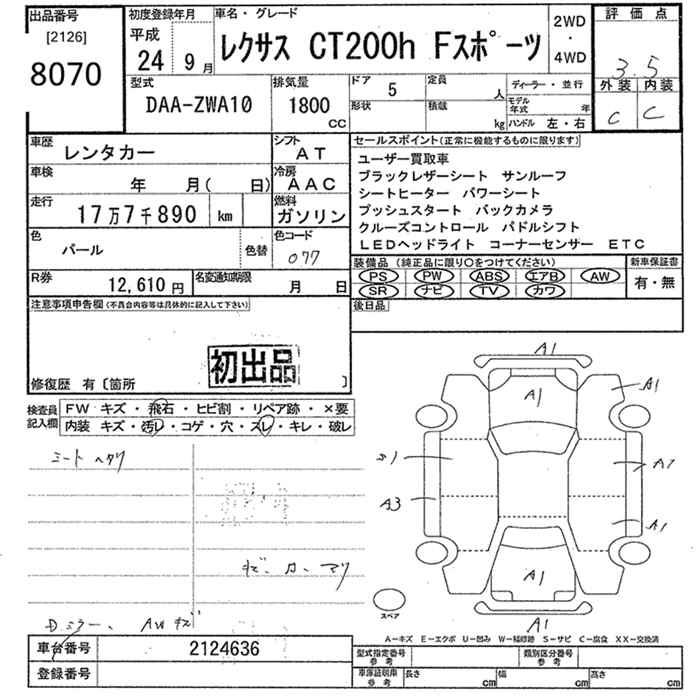 出品番号
[2126]
8070
初度登録年月
平成
24 9月
車名・グレード
レクサス CT200h Fスポーツ
2WD
・
4WD
評価点
3.5
外装 内装
C C
型式
DAA-ZWA10
排気量
1800
CC
ドア 5
定員 人
形状
積載 kg
ディーラー・並行
モデル年式 年
ハンドル 左・右
車歴
レンタカー
シフト
AT
車検
年 月( 日)
冷房
AAC
走行
17万7千890 km
燃料
ガソリン
色
パール
色替
色コード
077
R券
12,610円
名変通知期限
月 日
セールスポイント(正常に機能するものに限ります)
ユーザー買取車
ブラックレザーシート サンルーフ
シートヒーター パワーシート
プッシュスタート バックカメラ
クルーズコントロール パドルシフト
LEDヘッドライト コーナーセンサー ETC
装備品(純正品に限り○をつけてください)
PS PW ABS エアB AW
SR ナビ TV カワ
新車保証書
有・無
後日品
注意事項申告欄(不具合内容等は具体的に記入して下さい)
初出品
修復歴 有〔箇所 〕
検査員記入欄
FW キズ・飛石・ヒビ割・リペア跡・×要
内装 キズ・汚レ・コゲ・穴・スレ・キレ・破レ
シートヘタリ
Dミラー、AWキズ
A1
A1
A1
A3
A1
A1
A1
スペア
A-キズ E-エクボ U-凹み W-補修跡 S-サビ C-腐食 XX-交換済
車台番号
2124636
登録番号
型式指定番号
参考
類別区分番号
参考
車庫証明用
参考
長さ cm
幅 cm
高さ cm